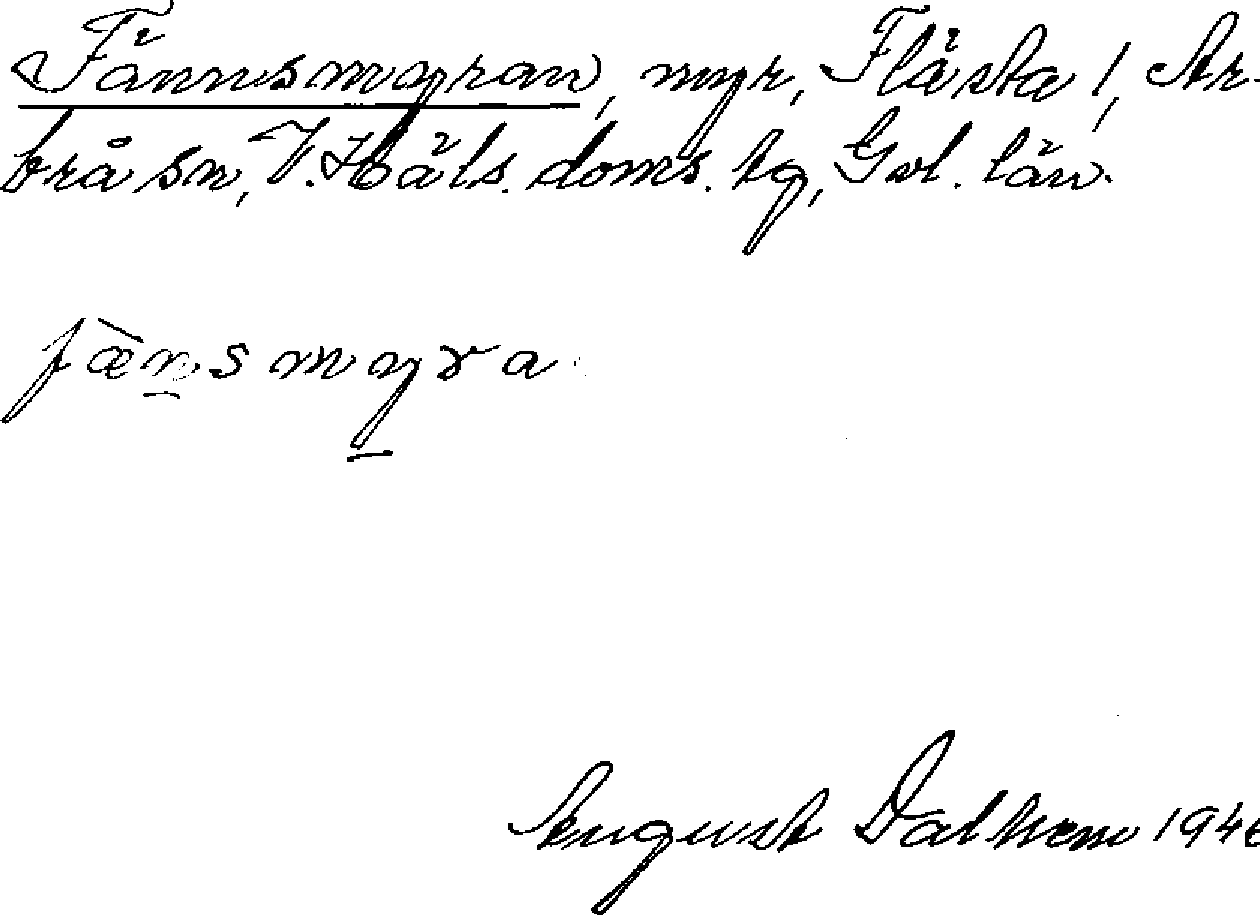 Fännsmyran, myr, Flästa 1, Ar-
brå sn, V. Häls. doms. tg, Gvl. län.
fæ̀nsmyra
August Dalhem 1946